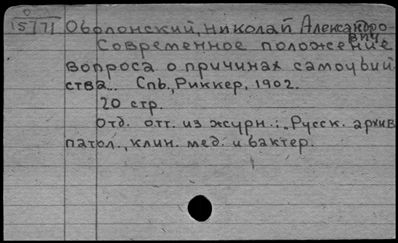 0
15771 Оболонский, Николай Александро
вич
Современное положение
вопроса о причинах самоубий
ства.. Спб., Риккер, 1902.
20 стр.
Отд. отт. из журн.: „Русск. архив
патол., клин. мед. и бактер.